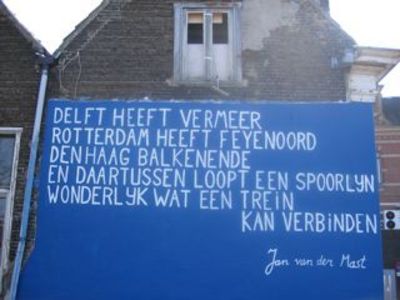 DELFT HEEFT VERMEER
ROTTERDAM HEEFT FEYENOORD
DEN HAAG BALKENENDE
EN DAARTUSSEN LOOPT EEN SPOORLYN
WONDERLYK WAT EEN TREIN
KAN VERBINDEN
Jan van der Mast